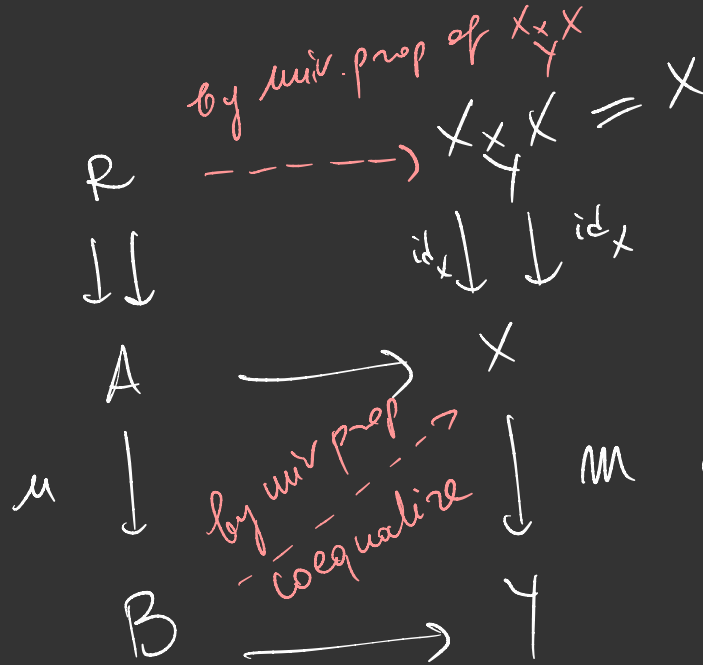 by univ. prop of X ×_Y X
R
X ×_Y X = X
id_X
id_X
A
X
by univ prop
u
m
coequalize
B
Y